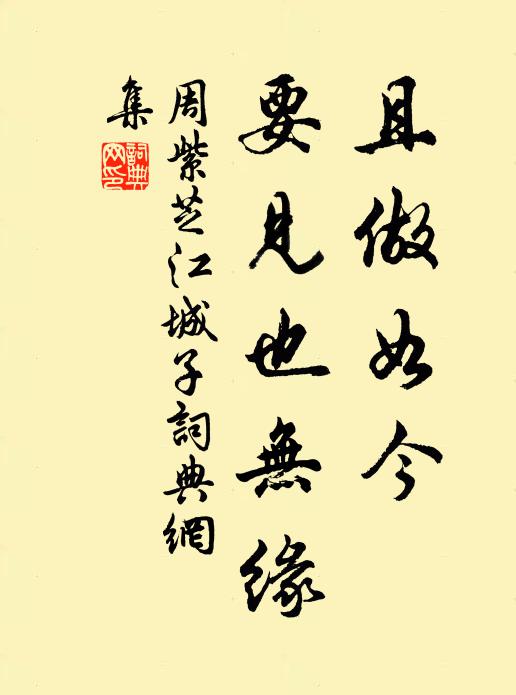 且做如今
要見也無緣
周紫芝江城子詞典網
集
詞典網印